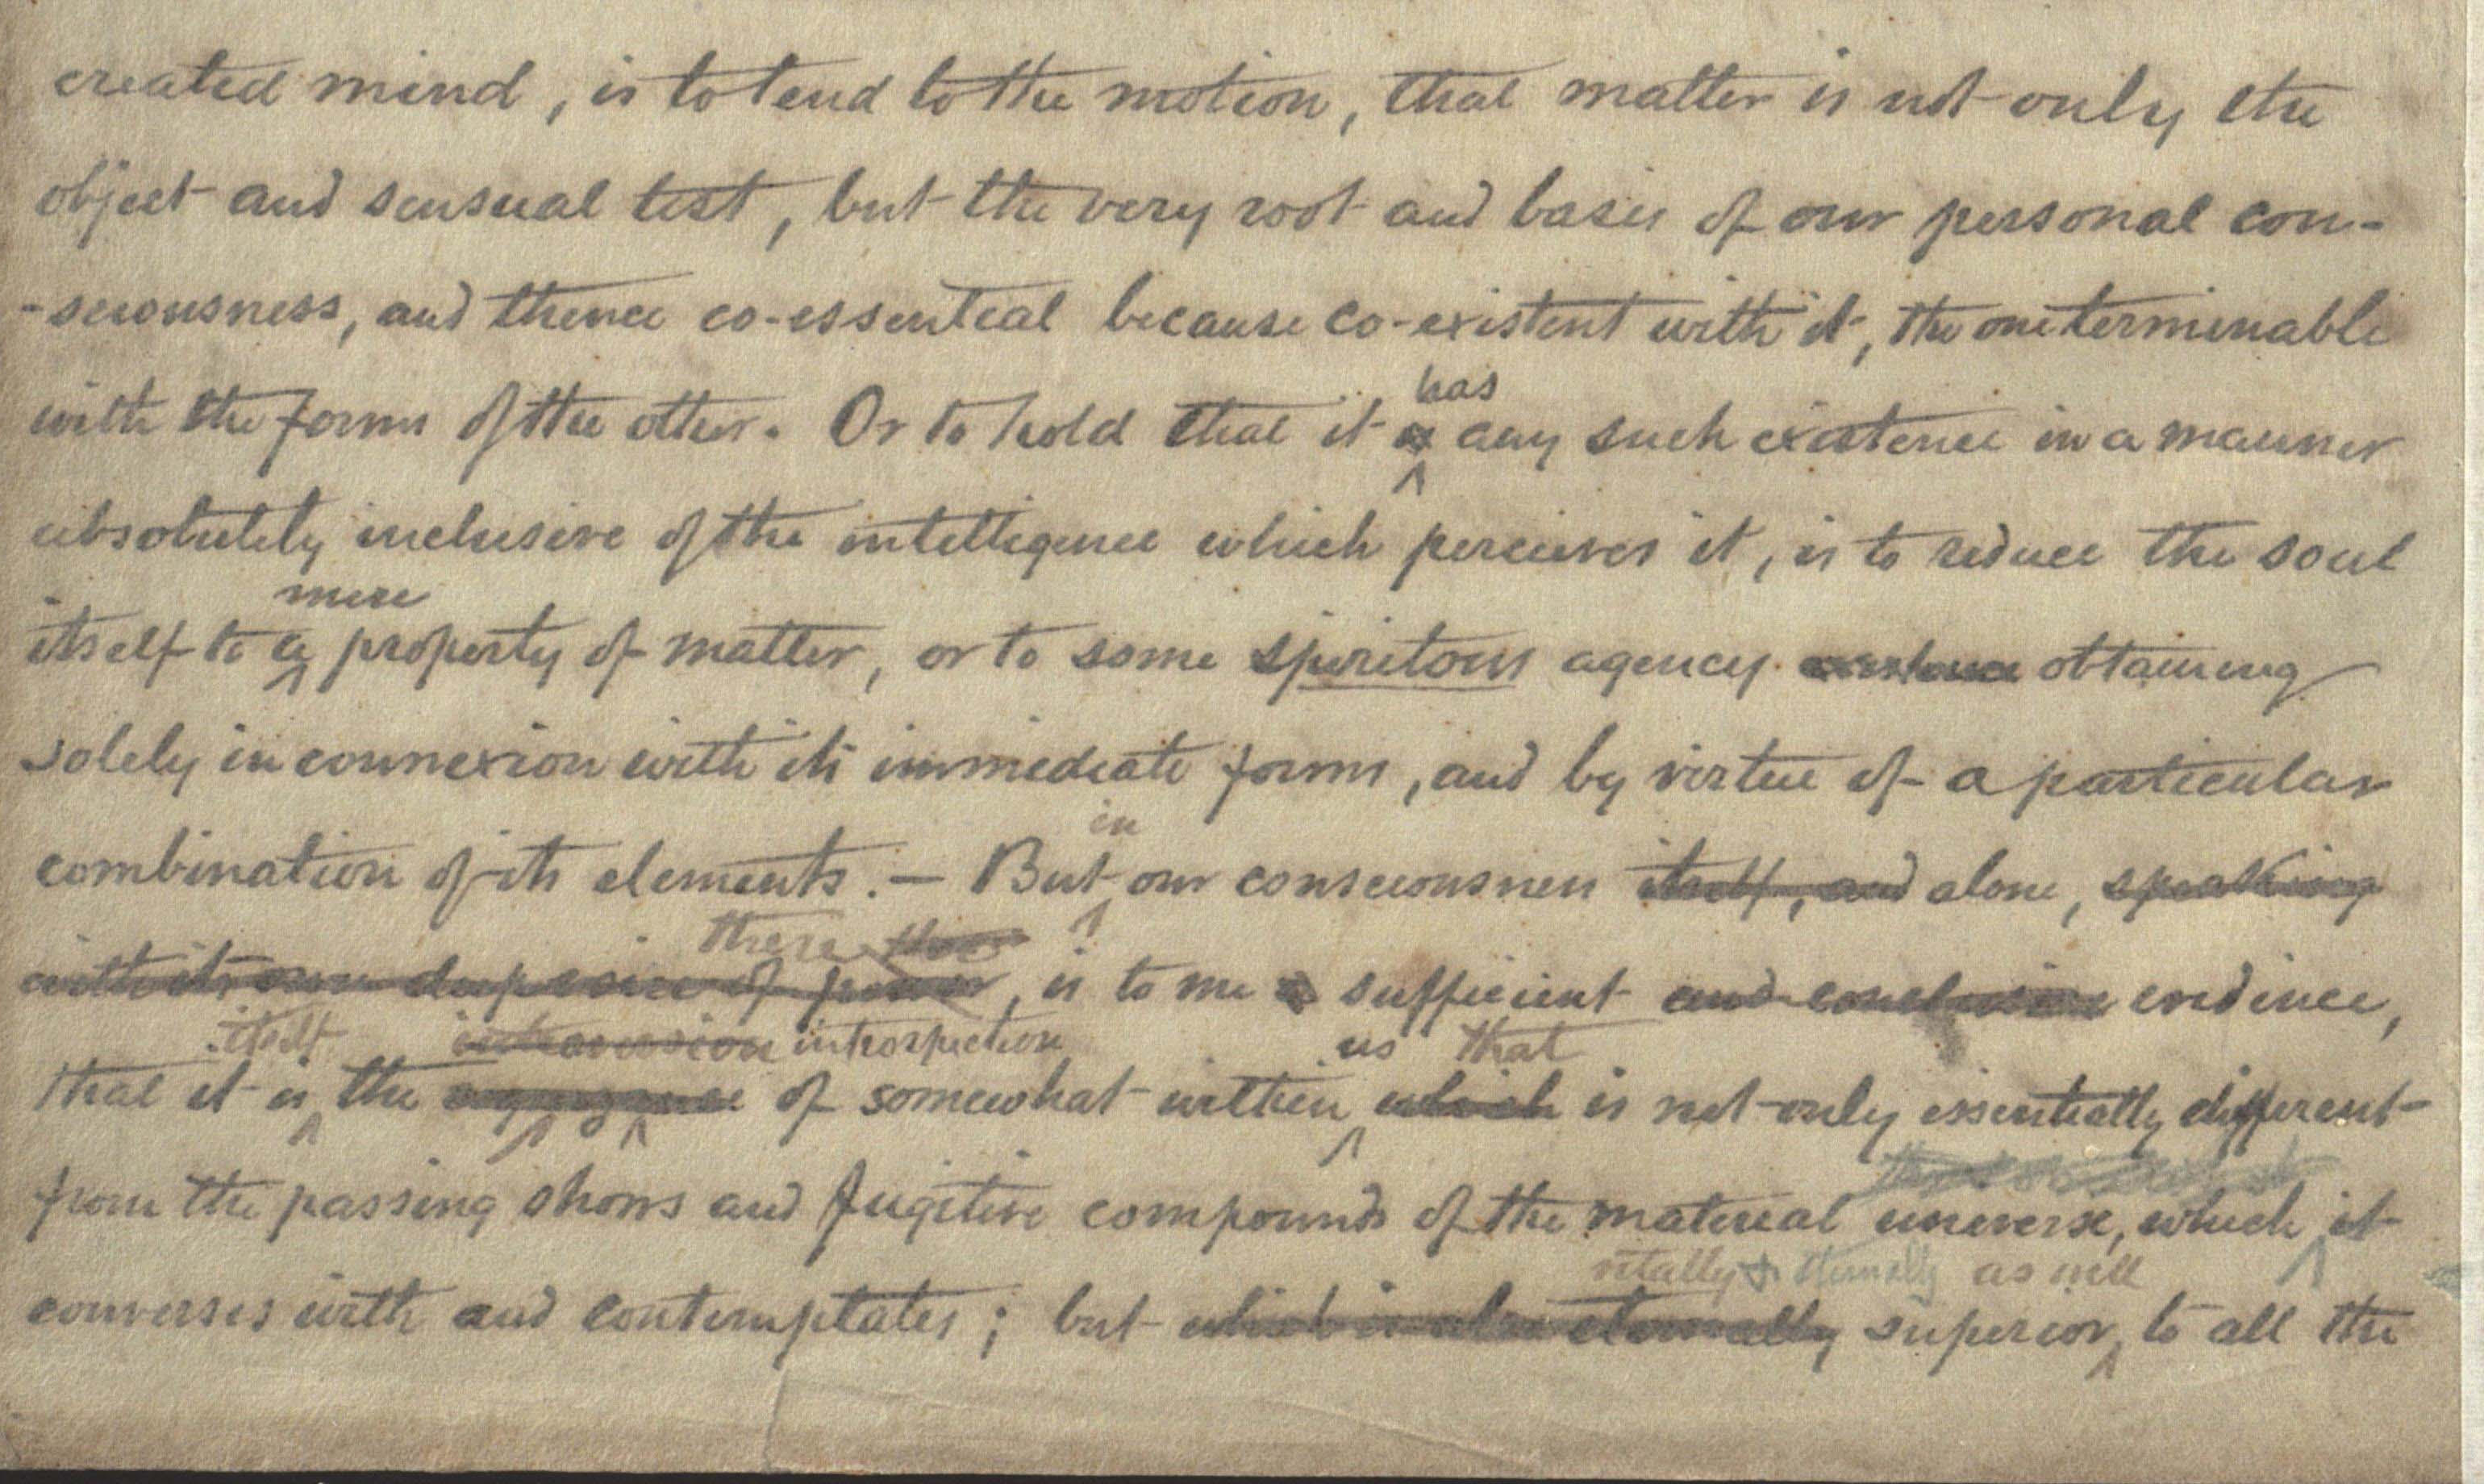 created mind, is to tend to the motion, that matter is not only the
object and sensual test, but the very root and basis of our personal con-
-sciousness, and thence co-essential because co-existent with it, the one terminable
has
with the forms of the other. Or to hold that it any such existence in a manner
absolutely inclusive of the intelligence which perceives it, is to reduce the soul
mere
itself to a property of matter, or to some spiritous agency obtaining
solely in connexion with its immediate forms, and by virtue of a particular
in
combination of its elements. — But our consciousness itself, and alone, speaking
there
with its own deep voice of power, is to me sufficient and conclusive evidence,
itself introspection us that
that it is the of somewhat within which is not only essentially different
from the passing shows and fugitive compounds of the material universe, which it
vitally & eternally as well
converses with and contemplates; but which is also eternally superior, to all the